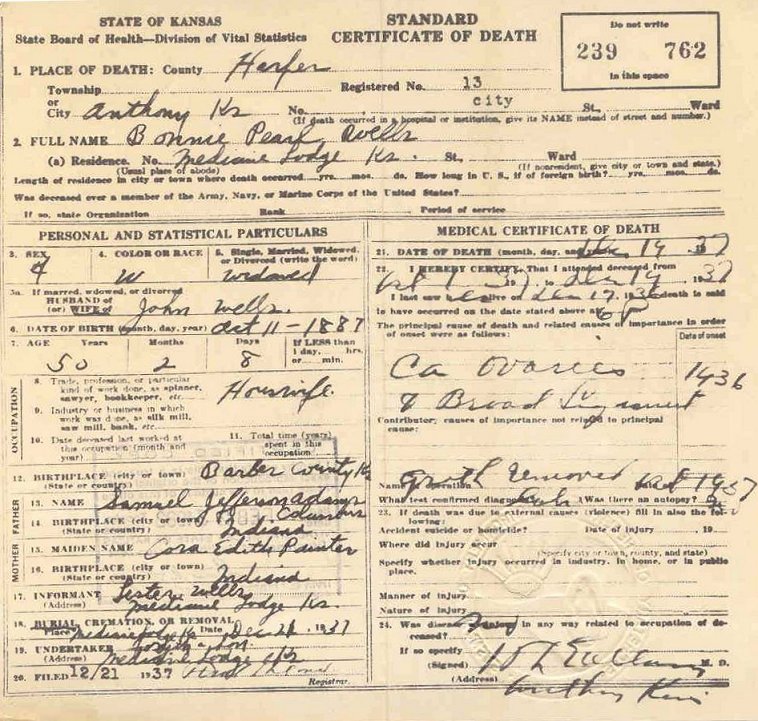 STATE OF KANSAS
State Board of Health—Division of Vital Statistics
STANDARD
CERTIFICATE OF DEATH
Do not write
239 762
in this space
1. PLACE OF DEATH: County Harper
Township Registered No. 13
or
City Anthony Ks No. city St., Ward
(If death occurred in a hospital or institution, give its NAME instead of street and number.)
2. FULL NAME Bonnie Pearl Wells
(a) Residence. No. Medicine Lodge Ks. St., Ward
(Usual place of abode) (If nonresident, give city or town and state.)
Length of residence in city or town where death occurred yrs. mos. ds. How long in U. S., if of foreign birth? yrs. mos. ds.
Was deceased ever a member of the Army, Navy, or Marine Corps of the United States?
If so, state Organization Rank Period of service
PERSONAL AND STATISTICAL PARTICULARS
3. SEX 4. COLOR OR RACE 5. Single, Married, Widowed, or Divorced (write the word)
F W Widowed
5a. If married, widowed, or divorced
HUSBAND of
(or) WIFE of John Wells
6. DATE OF BIRTH (month, day, year) Oct 11-1887
7. AGE Years Months Days If LESS than 1 day, hrs. or min.
50 2 8
OCCUPATION
8. Trade, profession, or particular kind of work done, as spinner, sawyer, bookkeeper, etc. Housewife
9. Industry or business in which work was done, as silk mill, saw mill, bank, etc.
10. Date deceased last worked at this occupation (month and year)
11. Total time (years) spent in this occupation
12. BIRTHPLACE (city or town) Barber County Ks
(State or country)
FATHER
13. NAME Samuel Jefferson Adams
14. BIRTHPLACE (city or town) Columbus
(State or country) Indiana
MOTHER
15. MAIDEN NAME Cora Edith Painter
16. BIRTHPLACE (city or town)
(State or country) Indiana
17. INFORMANT Lester Wells
(Address) Medicine Lodge Ks.
18. BURIAL, CREMATION, OR REMOVAL
Place Date Dec 21 1937
19. UNDERTAKER
(Address) Medicine Lodge Ks
20. FILED 12/21 1937
Registrar.
MEDICAL CERTIFICATE OF DEATH
21. DATE OF DEATH (month, day, and year) Dec 19 1937
22. I HEREBY CERTIFY, That I attended deceased from
to Dec 19 1937
I last saw alive on Dec 17 death is said
to have occurred on the date stated above at
The principal cause of death and related causes of importance in order of onset were as follows:
Date of onset
Ca Ovaries 1936
& Broad Ligament
Contributory causes of importance not related to principal cause:
Name of operation removed Date of 1937
What test confirmed diagnosis? Was there an autopsy?
23. If death was due to external causes (violence) fill in also the following:
Accident suicide or homicide? Date of injury 19
Where did injury occur
(Specify city or town, county, and state)
Specify whether injury occurred in industry, in home, or in public place.
Manner of injury
Nature of injury
24. Was disease or injury in any way related to occupation of deceased?
If so specify
(Signed) M. D.
(Address) Anthony